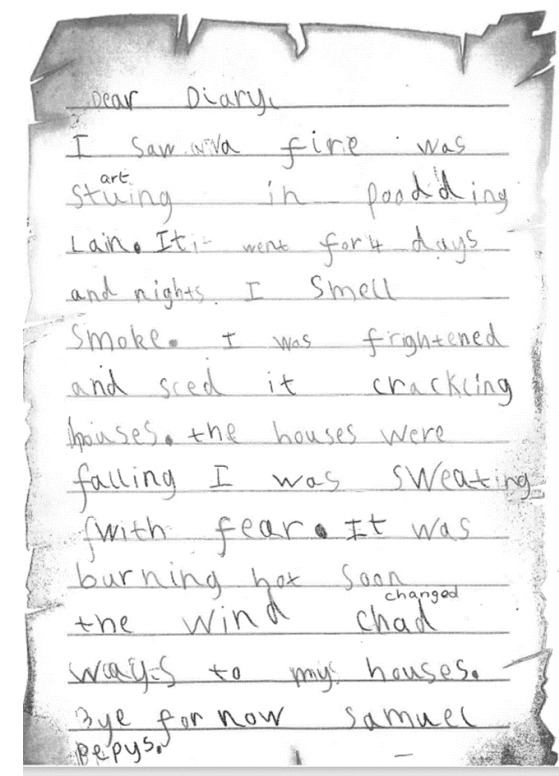 Dear Diary,
I saw a fire was
art
stuing in poodding
Lain. It went for 4 days
and nights. I Smell
Smoke. I was frightened
and sced it crackling
houses. the houses were
falling I was sweating
with fear. It was
burning hot soon
changed
the wind chad
ways to my houses.
Bye for now Samuel
Pepys.